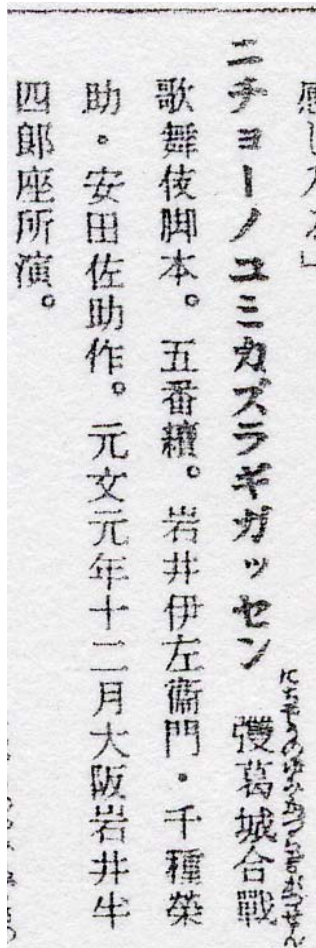 感じ入る」
ニチョーノユミカズラギガッセン 彏葛城合戰
にちやうのゆみかつらぎがつせん
歌舞伎脚本。五番續。岩井伊左衞門・千種榮
助・安田佐助作。元文元年十二月大阪岩井半
四郎座所演。